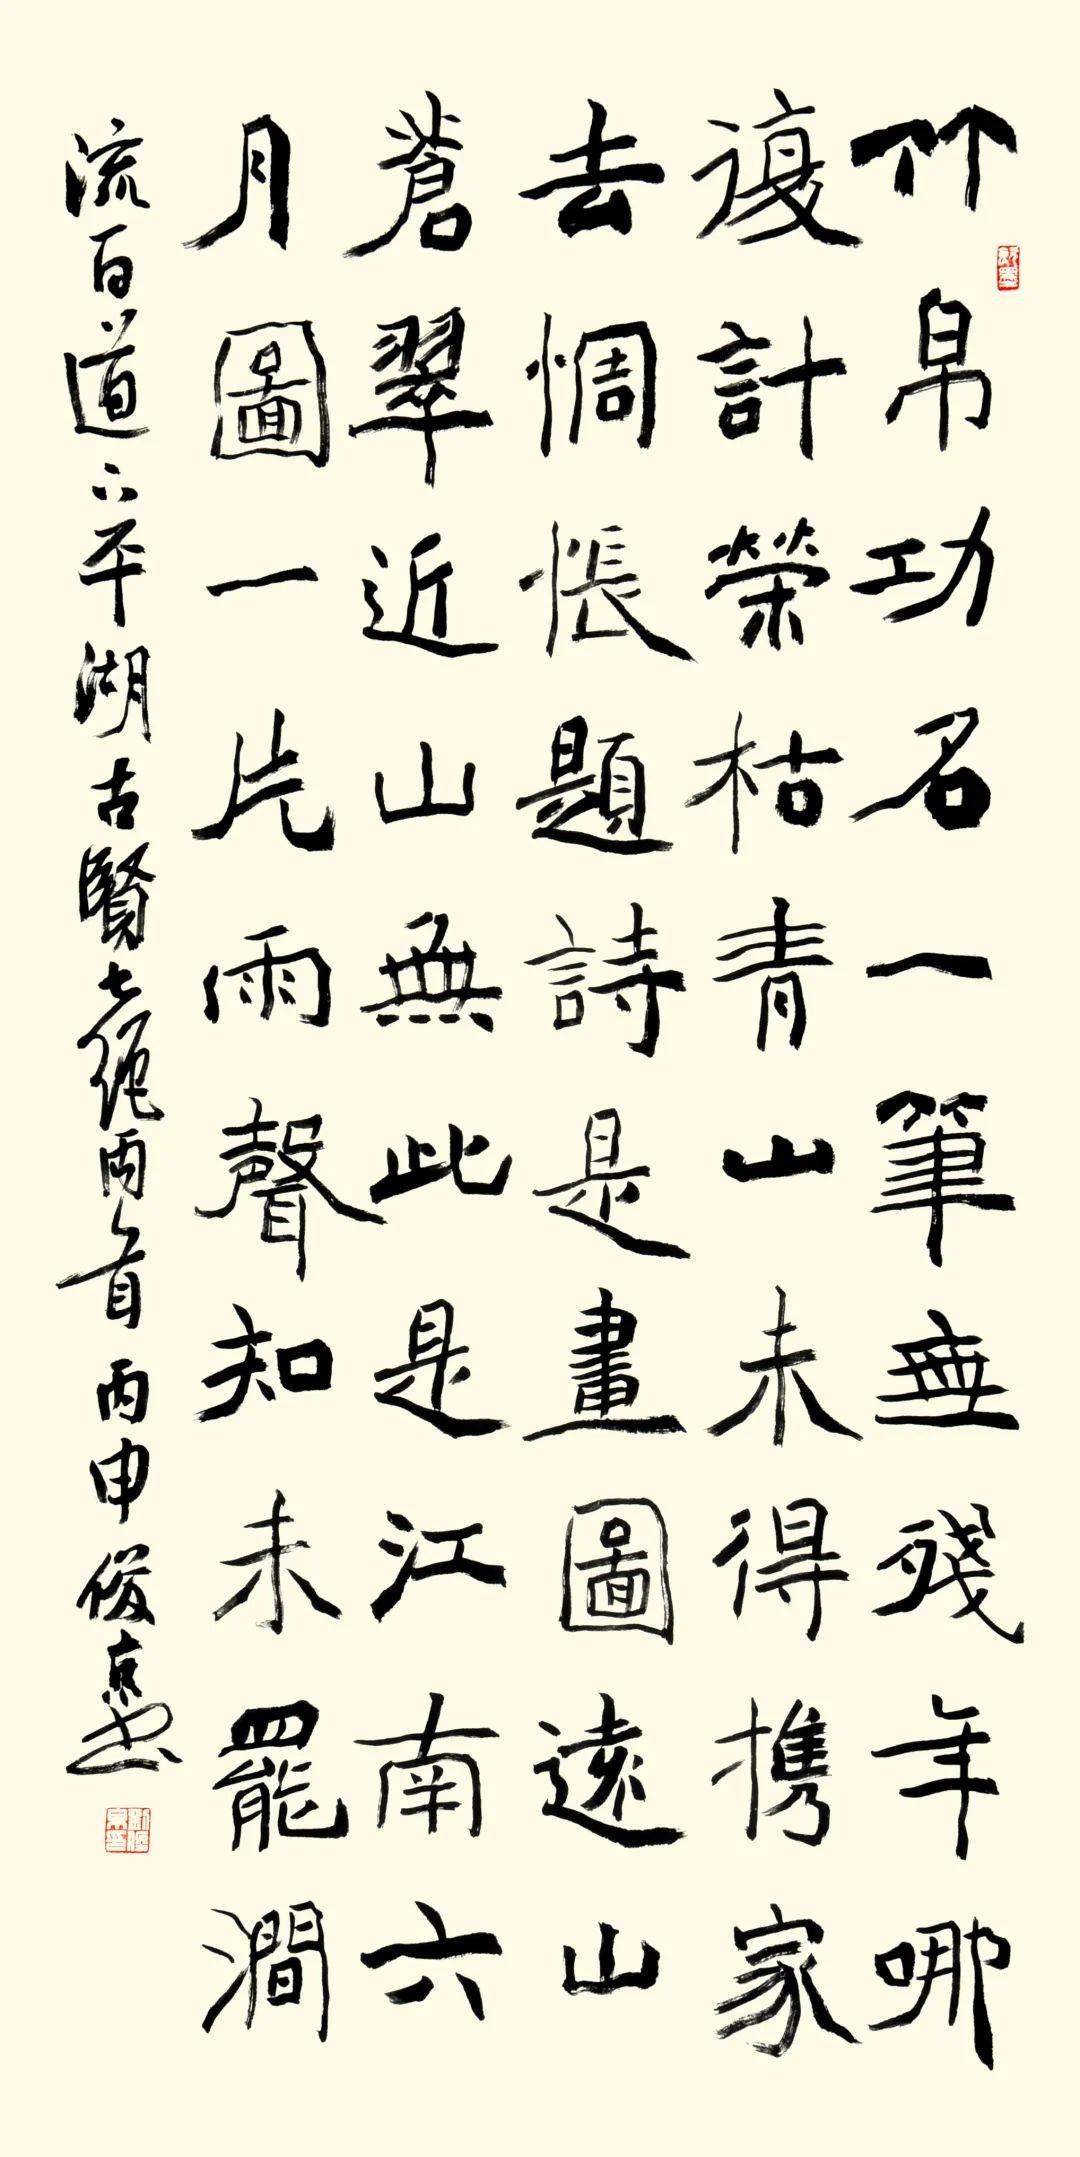 竹帛功名一筆無殘年哪
復計榮枯青山未得携家
去惆悵題詩是畫圖遠山
蒼翠近山無此是江南六
月圖一片雨聲知未罷澗
流百道下平湖古賢七絕兩首丙申俊京書